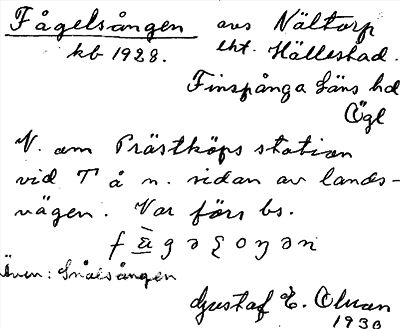 Fågelsången avs Nältorp
kb 1928. ekt. Hällestad.
Finspånga läns hd
Ögl
N. om Prästköps station
vid T å n. sidan av lands-
vägen. Var förr bs.
Även: Snålsången
Gustaf E. Olsson
1930